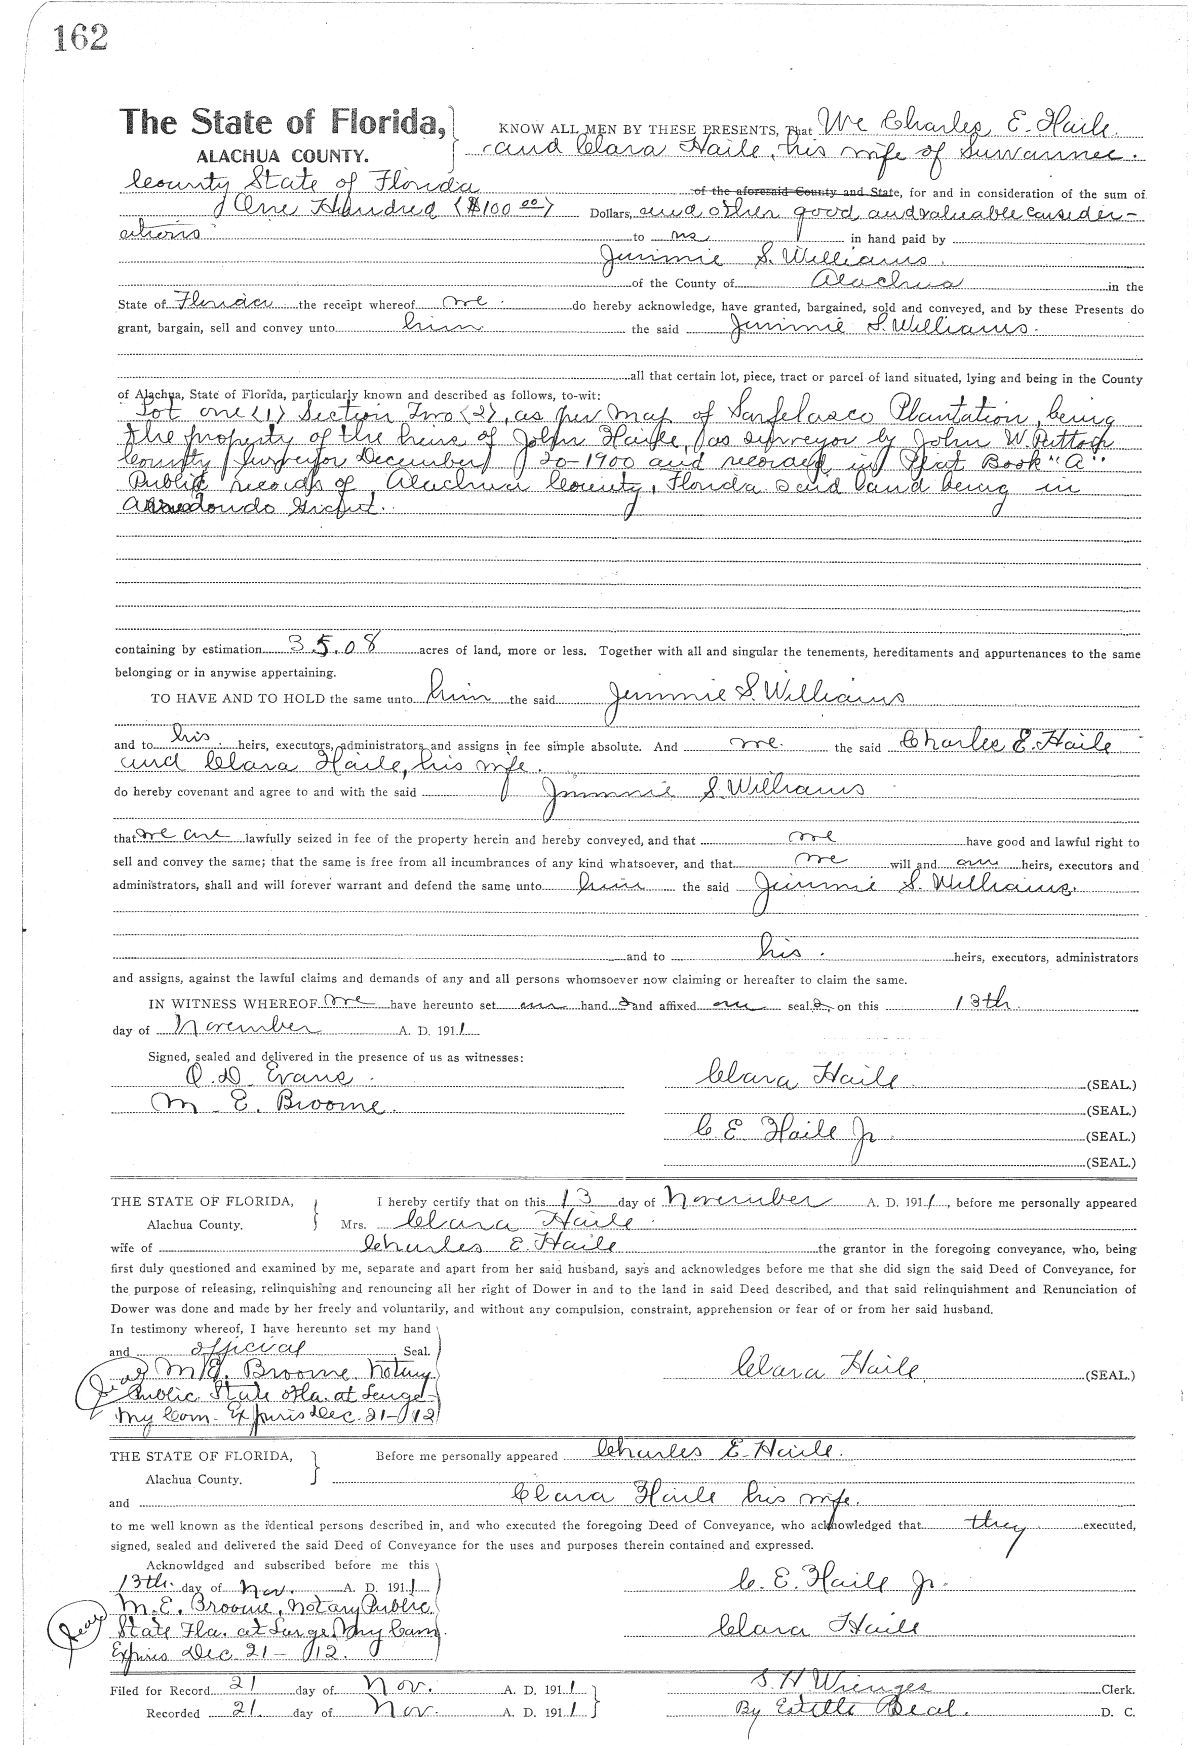 162
The State of Florida, KNOW ALL MEN BY THESE PRESENTS, That We Charles E. Haile
ALACHUA COUNTY. and Clara Haile, his wife of Suwannee
County State of Florida of the aforesaid County and State, for and in consideration of the sum of
One Hundred ($100 00) Dollars, and other good and valuable consider-
ations to us in hand paid by
Jimmie S. Williams
of the County of Alachua in the
State of Florida the receipt whereof we do hereby acknowledge, have granted, bargained, sold and conveyed, and by these Presents do
grant, bargain, sell and convey unto him the said Jimmie S. Williams.
all that certain lot, piece, tract or parcel of land situated, lying and being in the County
of Alachua, State of Florida, particularly known and described as follows, to-wit:
Lot one (1) Section Two (2), as per map of Sanfelasco Plantation, being
the property of the heirs of John Haile, as surveyor by John W.
County Surveyor December 20-1900 and record in Plat Book "A"
Public records of Alachua County, Florida said land being in
Arredondo Grant.
containing by estimation 35.08 acres of land, more or less. Together with all and singular the tenements, hereditaments and appurtenances to the same
belonging or in anywise appertaining.
TO HAVE AND TO HOLD the same unto him the said Jimmie S. Williams
and to his heirs, executors, administrators and assigns in fee simple absolute. And we the said Charles E. Haile
and Clara Haile, his wife.
do hereby covenant and agree to and with the said Jimmie S. Williams
that we are lawfully seized in fee of the property herein and hereby conveyed, and that we have good and lawful right to
sell and convey the same; that the same is free from all incumbrances of any kind whatsoever, and that we will and our heirs, executors and
administrators, shall and will forever warrant and defend the same unto him the said Jimmie S. Williams.
and to his. heirs, executors, administrators
and assigns, against the lawful claims and demands of any and all persons whomsoever now claiming or hereafter to claim the same.
IN WITNESS WHEREOF we have hereunto set our hand s and affixed our seal s, on this 13th.
day of November A. D. 1911
Signed, sealed and delivered in the presence of us as witnesses:
O. D. Evans. Clara Haile (SEAL.)
M. E. Broome. (SEAL.)
C E Haile Jr. (SEAL.)
(SEAL.)
THE STATE OF FLORIDA, I hereby certify that on this 13 day of November A. D. 1911, before me personally appeared
Alachua County. Mrs. Clara Haile
wife of Charles E. Haile the grantor in the foregoing conveyance, who, being
first duly questioned and examined by me, separate and apart from her said husband, says and acknowledges before me that she did sign the said Deed of Conveyance, for
the purpose of releasing, relinquishing and renouncing all her right of Dower in and to the land in said Deed described, and that said relinquishment and Renunciation of
Dower was done and made by her freely and voluntarily, and without any compulsion, constraint, apprehension or fear of or from her said husband.
In testimony whereof, I have hereunto set my hand
and official Seal.
M. E. Broome. Notary Clara Haile. (SEAL.)
Public State Fla. at Large
My Com. Expiris Dec. 21-1912
THE STATE OF FLORIDA, Before me personally appeared Charles E. Haile.
Alachua County.
and Clara Haile his wife.
to me well known as the identical persons described in, and who executed the foregoing Deed of Conveyance, who acknowledged that they executed,
signed, sealed and delivered the said Deed of Conveyance for the uses and purposes therein contained and expressed.
Acknowldged and subscribed before me this
13th. day of Nov. A. D. 1911 C. E. Haile Jr.
M. E. Broome, Notary Public
Seal State Fla. at Large. My Com Clara Haile
Expires Dec. 21-1912.
Filed for Record 21 day of Nov. A. D. 1911 S. H. Wienges Clerk.
Recorded 21. day of Nov. A. D. 1911 By Estelle Beal. D. C.